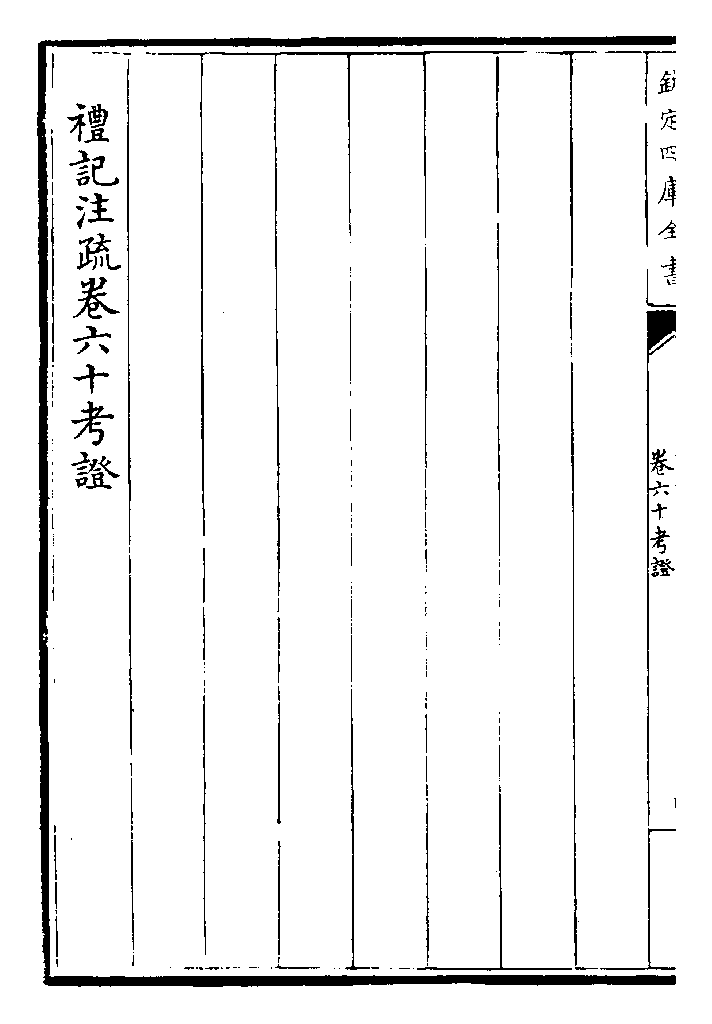 欽定四庫全書
卷六十考證
禮記注疏卷六十考證